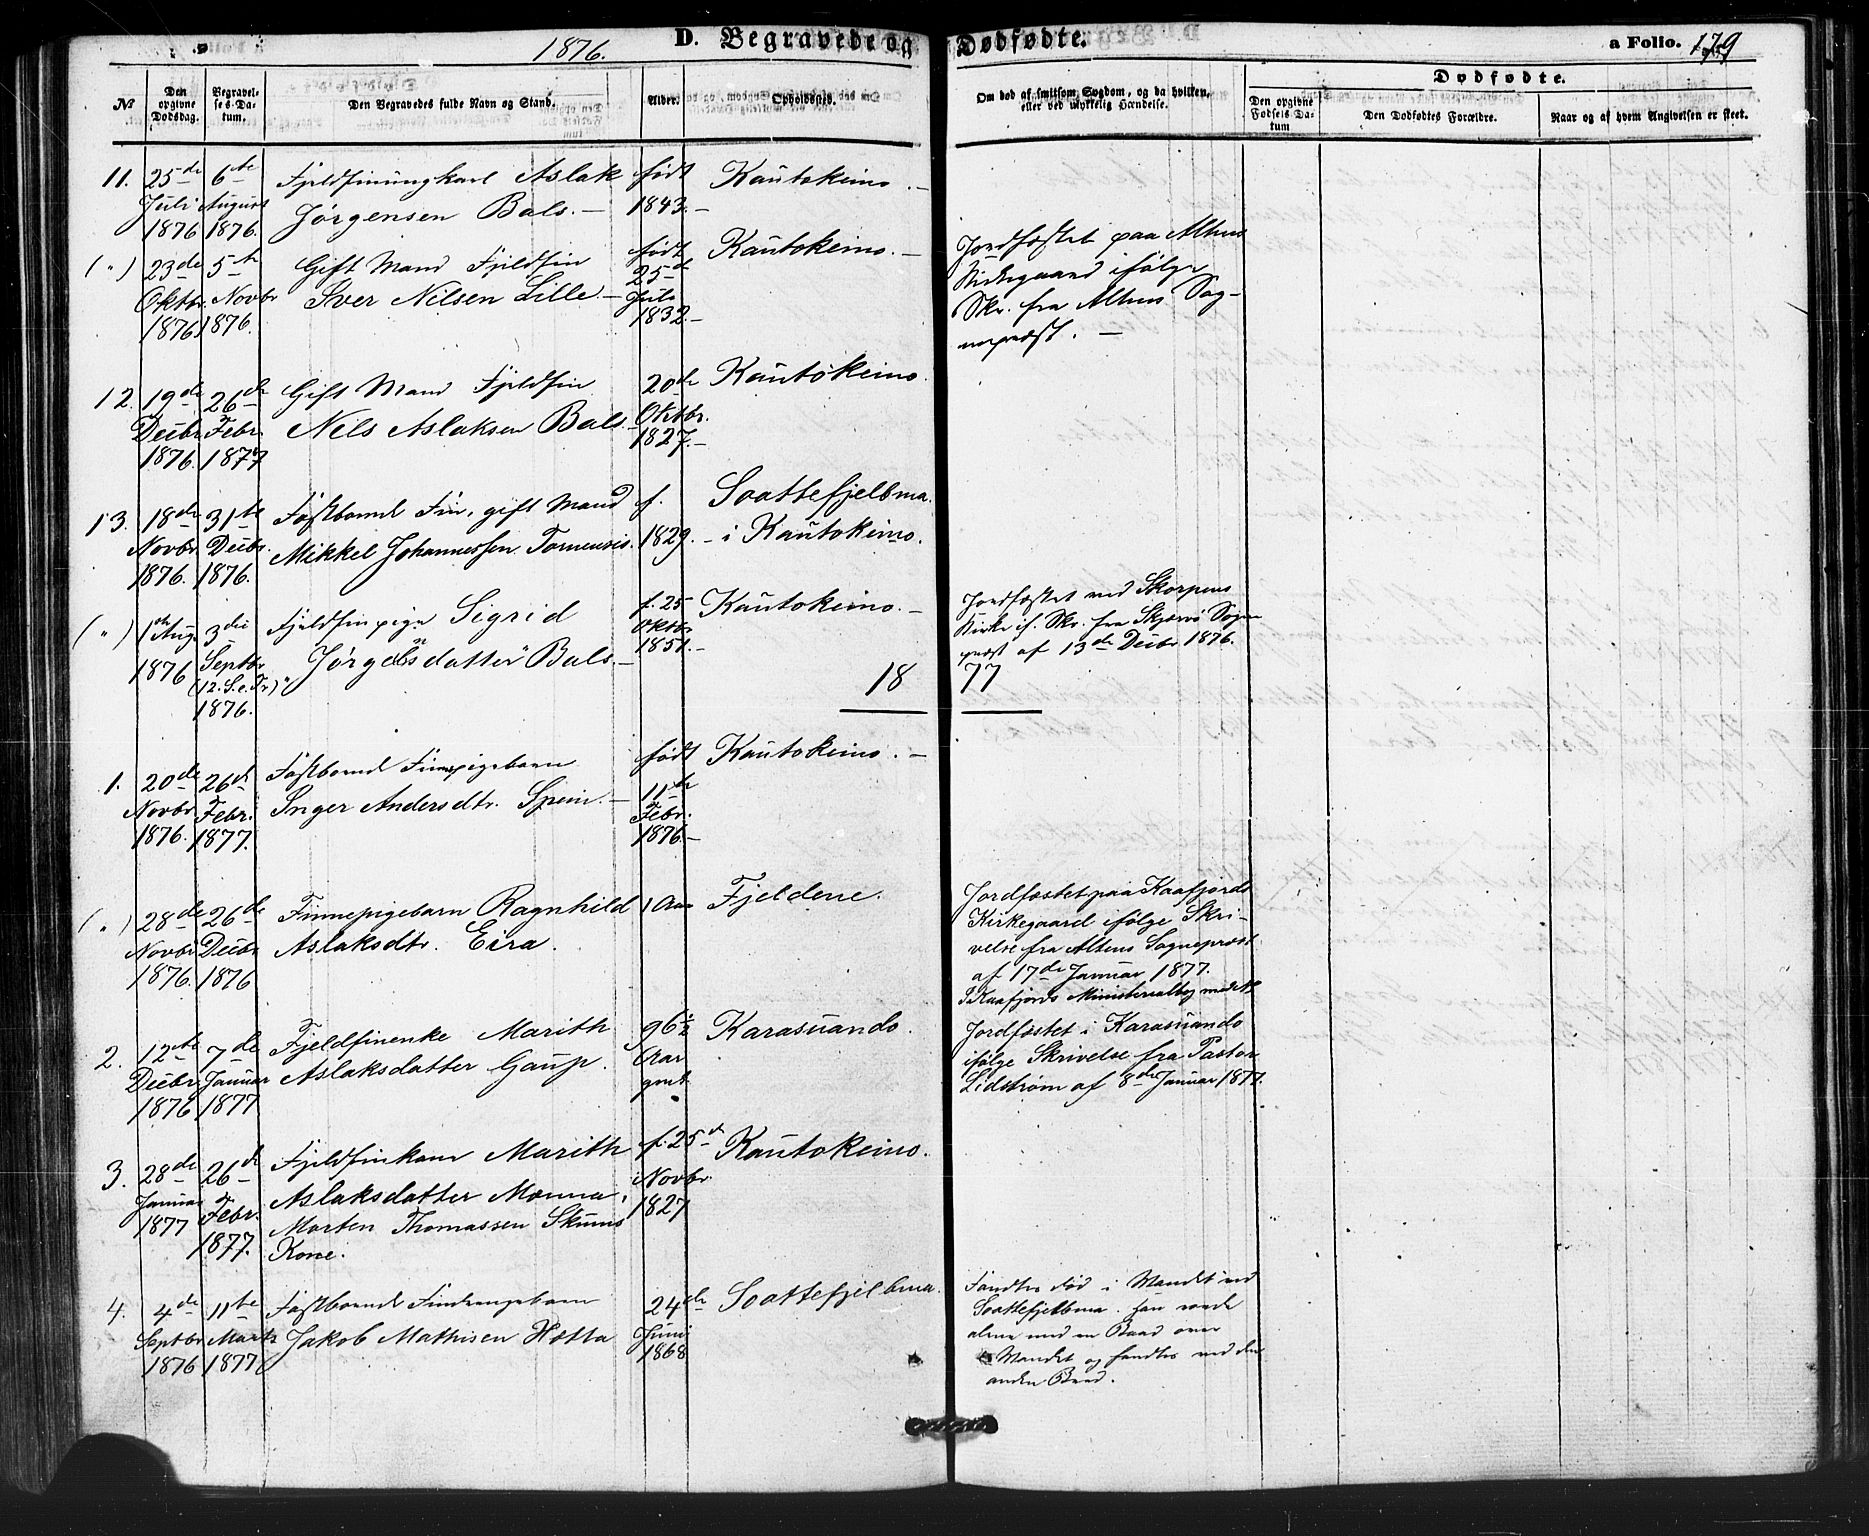 1876.
D. Begravede og Dødfødte.
a Folio. 179
No
Den opgivne Dødsdag.
Begravelses-Datum.
Den Begravedes fulde Navn og Stand.
Alder.
Opholdssted.
Om død af smitsom Sygdom, og da hvilken, eller ved ulykkelig Hændelse.
Dødfødte.
Den opgivne Fødsels Datum
Den Dødfødtes Forældre.
Naar og af hvem Angivelsen er skeet.
11.
25de Juli 1876
6te August 1876.
Fjeldfinungkarl Aslak
Jørgensen Bals. –
født
1843. –
Kautokeino. –
(")
23de Oktbr. 1876
5te Novbr 1876.
Gift Mand Fjeldfin
Iver Nilsen Lille. –
født
25de
Juli
1832. –
Kautokeino. –
Jordfæstet paa Altens
Kirkegaard ifølge
Skr. fra Altens Sog-
nepræst. –
12.
19de Decbr. 1876.
26de Febr. 1877
Gift Mand Fjeldfin
Nils Aslaksen Bals. –
20de
Oktbr.
1827. –
Kautokeino.
13.
18de Novbr. 1876.
31te Decbr. 1876.
Fastboende Fin, gift Mand
Mikkel Johannessen Tornensis.
f.
1829. –
Soattefjelbma.
i Kautokeino.
(")
1ste Aug. 1876
3die Septbr. (12. S. e. Tr.) 1876.
Fjeldfinpige Sigrid
Jørgensdatter Bals. –
f. 25
Oktbr
1851. –
Kautokeino. –
Jordfæstet ved Skorpens
Kirke if. Skr. fra Skjervø Sogne
præst af 13de Decbr 1876.
18 77
1.
20de Novbr. 1876.
26de Febr. 1877.
Fastboende Finnepigebarn
Inger Andersdtr. Spein. –
født
11te
Febr.
1876. –
Kautokeino. –
(")
28de Novbr 1876.
26de Decbr 1876
Finnepigebarn Ragnhild
Aslaksdtr. Eira.
1 Aar
Fjeldene.
Jordfæstet paa Kaafjords
Kirkegaard ifølge Skri-
velse fra Altens Sognepræst
af 17de Januar 1877.
I Kaafjords Ministerialbog med N
2.
12te Decbr. 1876
7de Januar 1877
Fjeldfinenke Marith
Aslaksdatter Gaup.
96½
Aar
gml.
Karasuando.
Jordfæstet i Karasuando
ifølge Skrivelse fra Pastor
Lidstrøm af 8de Januar 1877.
3.
28de Januar 1877
26de Febr. 1877.
Fjeldfinkone Marith
Aslaksdatter Mænna,
Morten Thomassen Skums
Kone.
f. 25de
Novbr.
1827
Kautokeino.
4.
4de Septbr 1876
11te Marts 1877
Fastboende Findrengebarn
Jakob Mathisen Hætta
24de
Juni
1868
Soattefjelbma.
Fandtes død i Vandet ved
Soattefjelbma. Han roede
alene med en Baad over
Vandet og fandtes ved den
anden Bred.